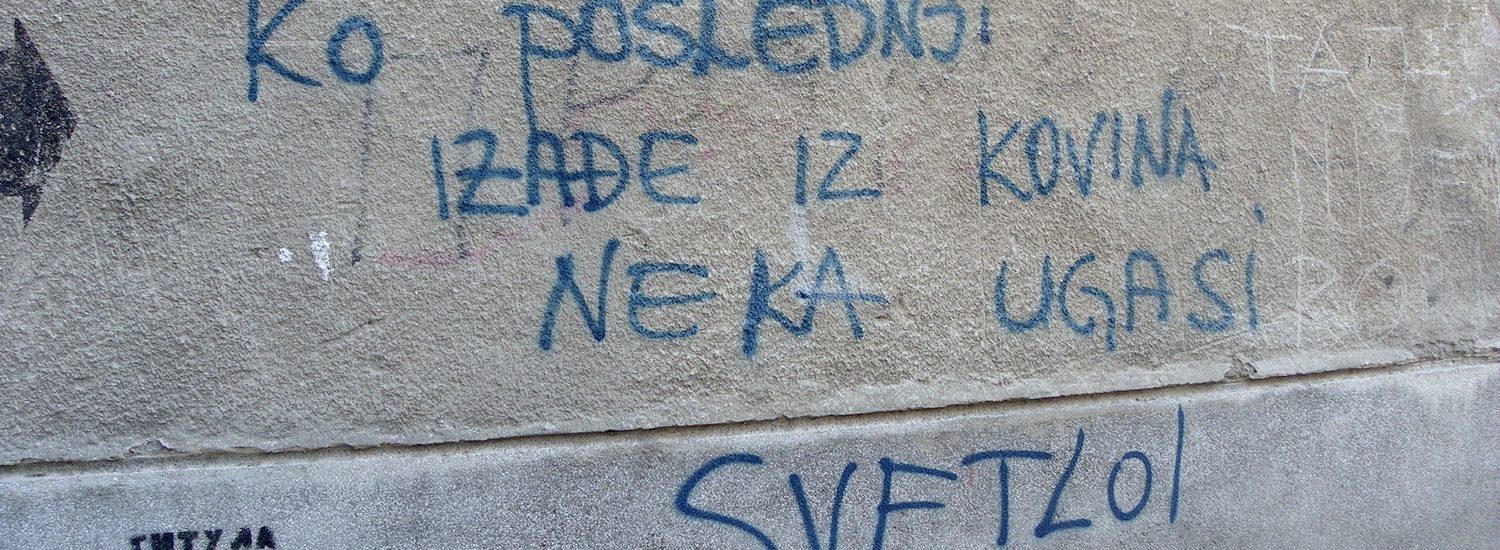 KO POSLEDNJI
IZAĐE IZ KOVINA
NEKA UGASI
SVETLO!
TAJ
NIJE